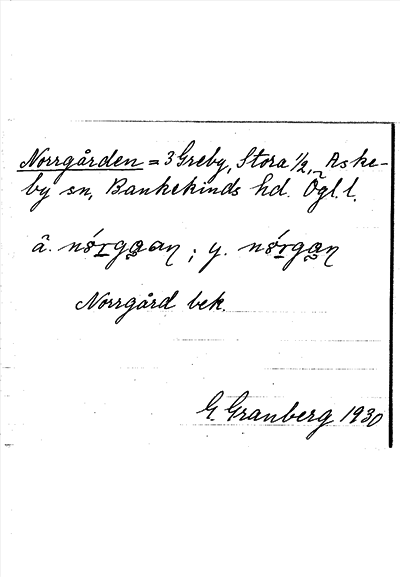 Norrgården = 3 Greby, Stora 1/2, Aske-
by sn, Bankekinds hd. Ögl. l.
ä. nǿrgaan ; y. nǿrgan
Norrgård bek.
G. Granberg 1930